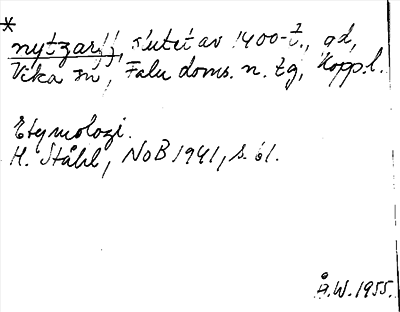 *
nytzarff, slutet av 1400-t., gd,
Vika sn, Falu doms. n. tg, Kopp.l.
Etymologi.
H. Ståhl, NoB 1941, s. 61.
Å.W. 1955.